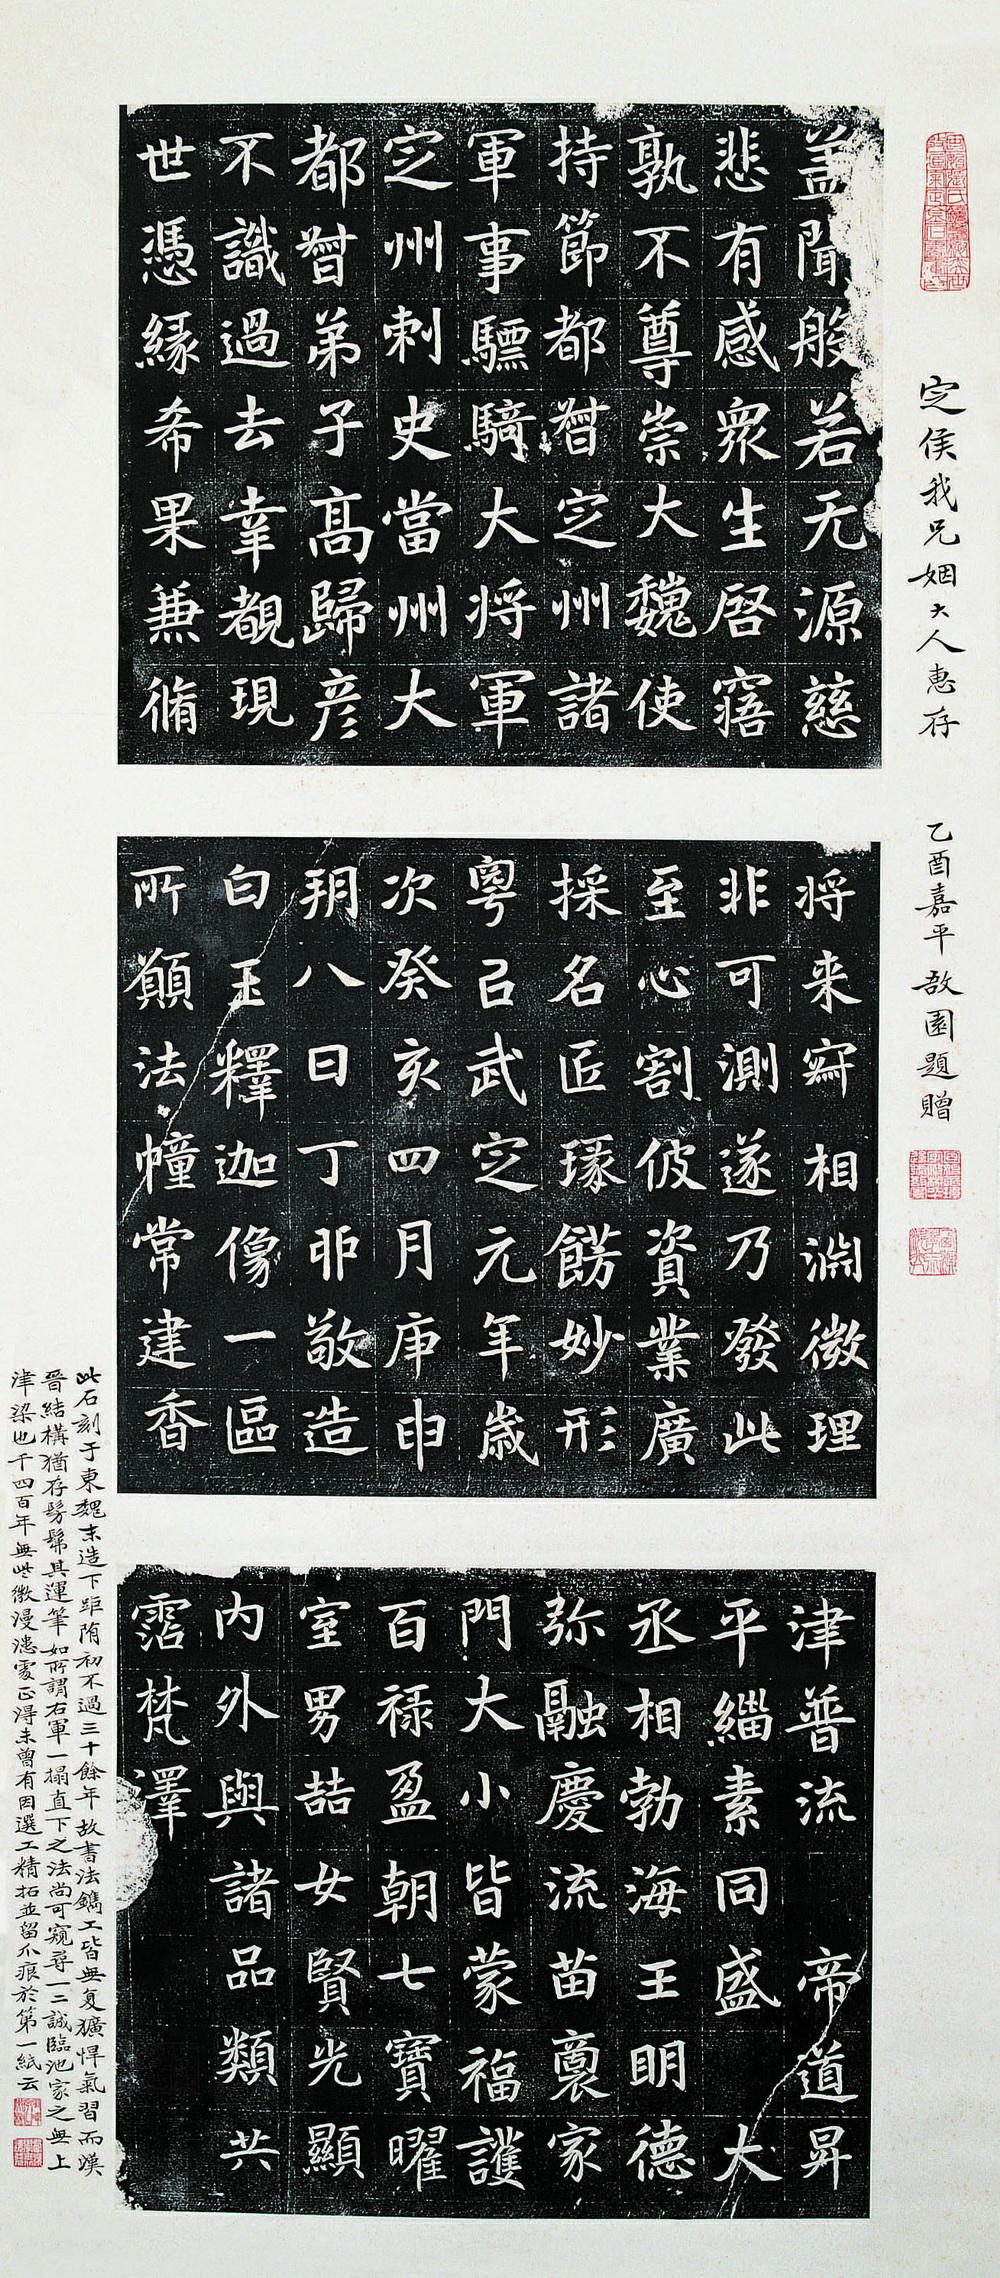 盖聞般若无源慈
悲有感衆生啓寤
孰不尊崇大魏使
持節都督定州諸
軍事驃騎大将軍
定州刺史當州大
都督弟子高歸彦
不識過去幸覩現
世憑緣希果兼脩
将来竂相渊微理
非可測遂乃發此
至心割彼資業廣
採名匠琢餝妙形
粤己武定元年歲
次癸亥四月庚申
玥八日丁卯敬造
白玉釋迦像一區
所顚法幢常建香
津普流　帝道昇
平緇素同盛　大
丞相勃海王明德
弥融慶流苗裔家
門大小皆蒙福護
百禄盈朝七寶曜
室男喆女賢光顯
内外與諸品類共
霑梵澤
定侯我兄姻大人惠存
乙酉嘉平敔園題贈
此石刻于東魏末造下距隋初不過三十餘年故書法鐫工皆無复獷悍氣習而漢
晋結構猶存髣髴其運筆如所謂右軍一搨直下之法尚可窺尋一二誠臨池家之無上
津梁也千四百年無些微漫漶處正得未曾有因選工精拓並留爪痕於第一紙云